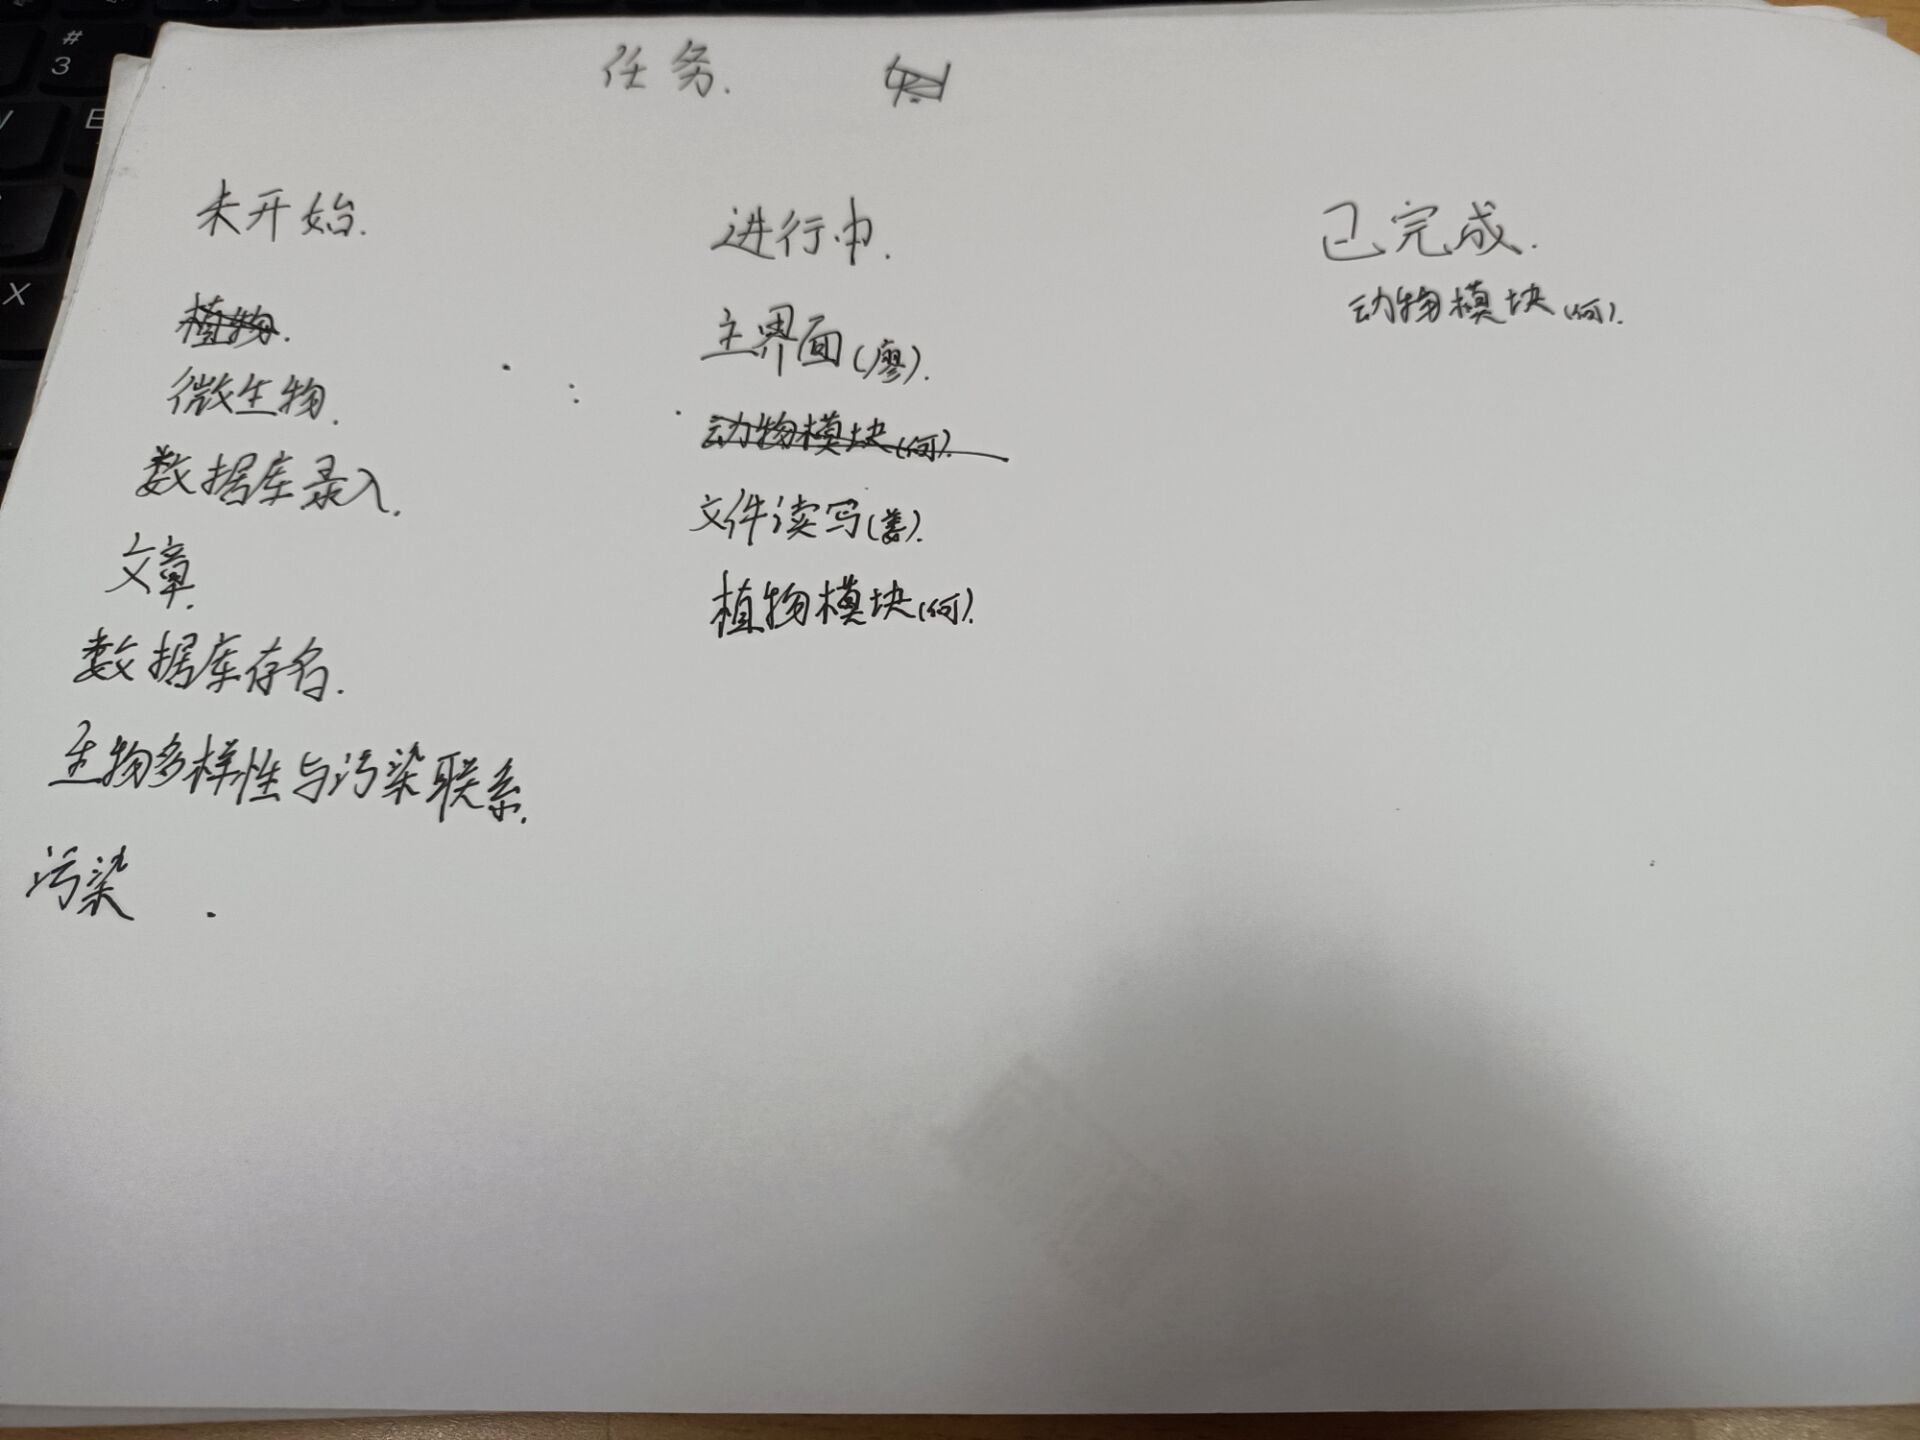 任务.
未开始.
植物.
微生物.
数据库录入.
文章.
数据库存名.
生物多样性与污染联系.
污染.
进行中.
主界面(廖).
动物模块(何).
文件读写(姜).
植物模块(何).
已完成.
动物模块(何).
#
3
E
X